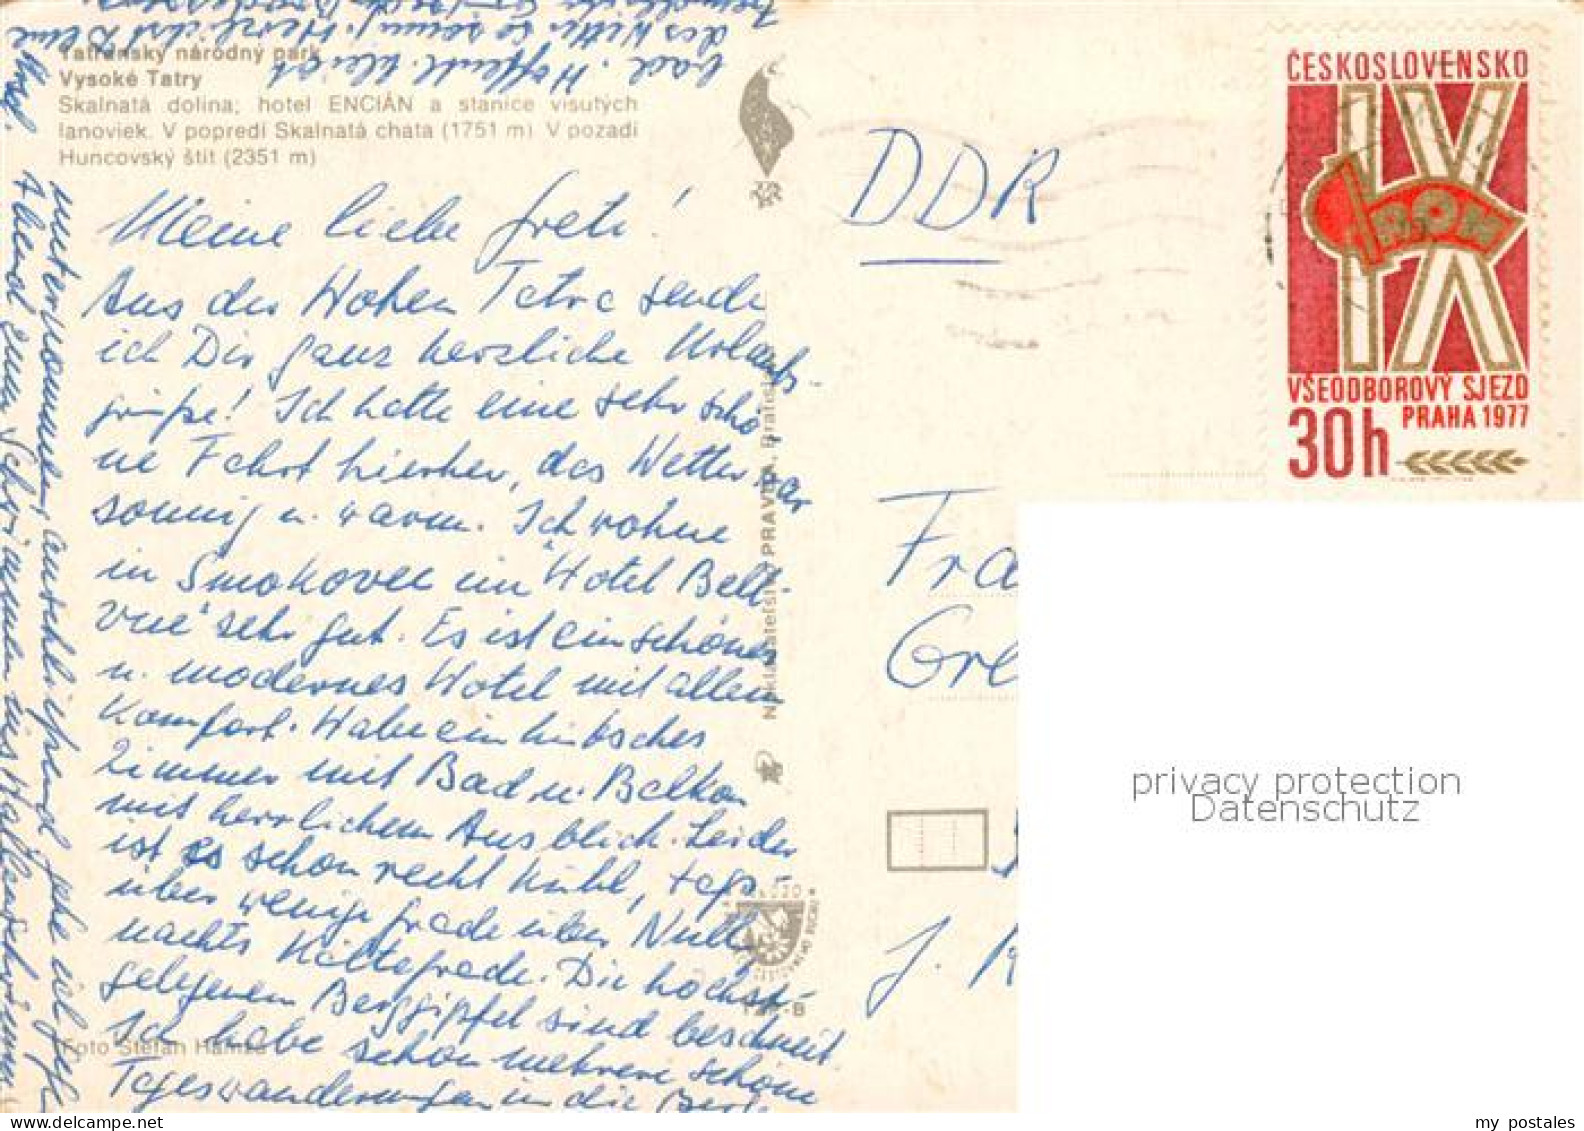 Tatranský národný park
Vysoké Tatry
Skalnatá dolina; hotel ENCIÁN a stanice visutých
lanoviek. V popredí Skalnatá chata (1751 m) V pozadí
Huncovský štít (2351 m)
Meine liebe Grete!
Aus der Hohen Tatra sende
ich Dir ganz herzliche Urlaubs-
grüße! Ich hatte eine sehr schö-
ne Fahrt hierher, das Wetter war
sonnig u. warm. Ich wohne
in Smokovec im "Hotel Bell-
vue" sehr gut. Es ist ein schönes
u. modernes Hotel mit allem
Komfort. Habe ein hübsches
Zimmer mit Bad u. Balkon
mit herrlichem Ausblick. Leider
ist es schon recht kühl, tags-
über wenige Grade über Null,
nachts Kältegrade. Die höchst-
gelegenen Berggipfel sind beschneit.
Ich habe schon mehrere schöne
Tageswanderungen in die Berge
unternommen, anschließend gehe ich jeden
Abend zum Schwimmen ins Hallenschwimm-
bad. Hoffentl. bleibt
das Wetter so sonnig. Herzlichst Deine
Foto Štefan Hamza
Nakladateľstvo PRAVDA, Bratislava
DDR
Fra
Gre
ČESKOSLOVENSKO
IX
ROH
VŠEODBOROVÝ SJEZD
PRAHA 1977
30h
privacy protection
Datenschutz
my postales